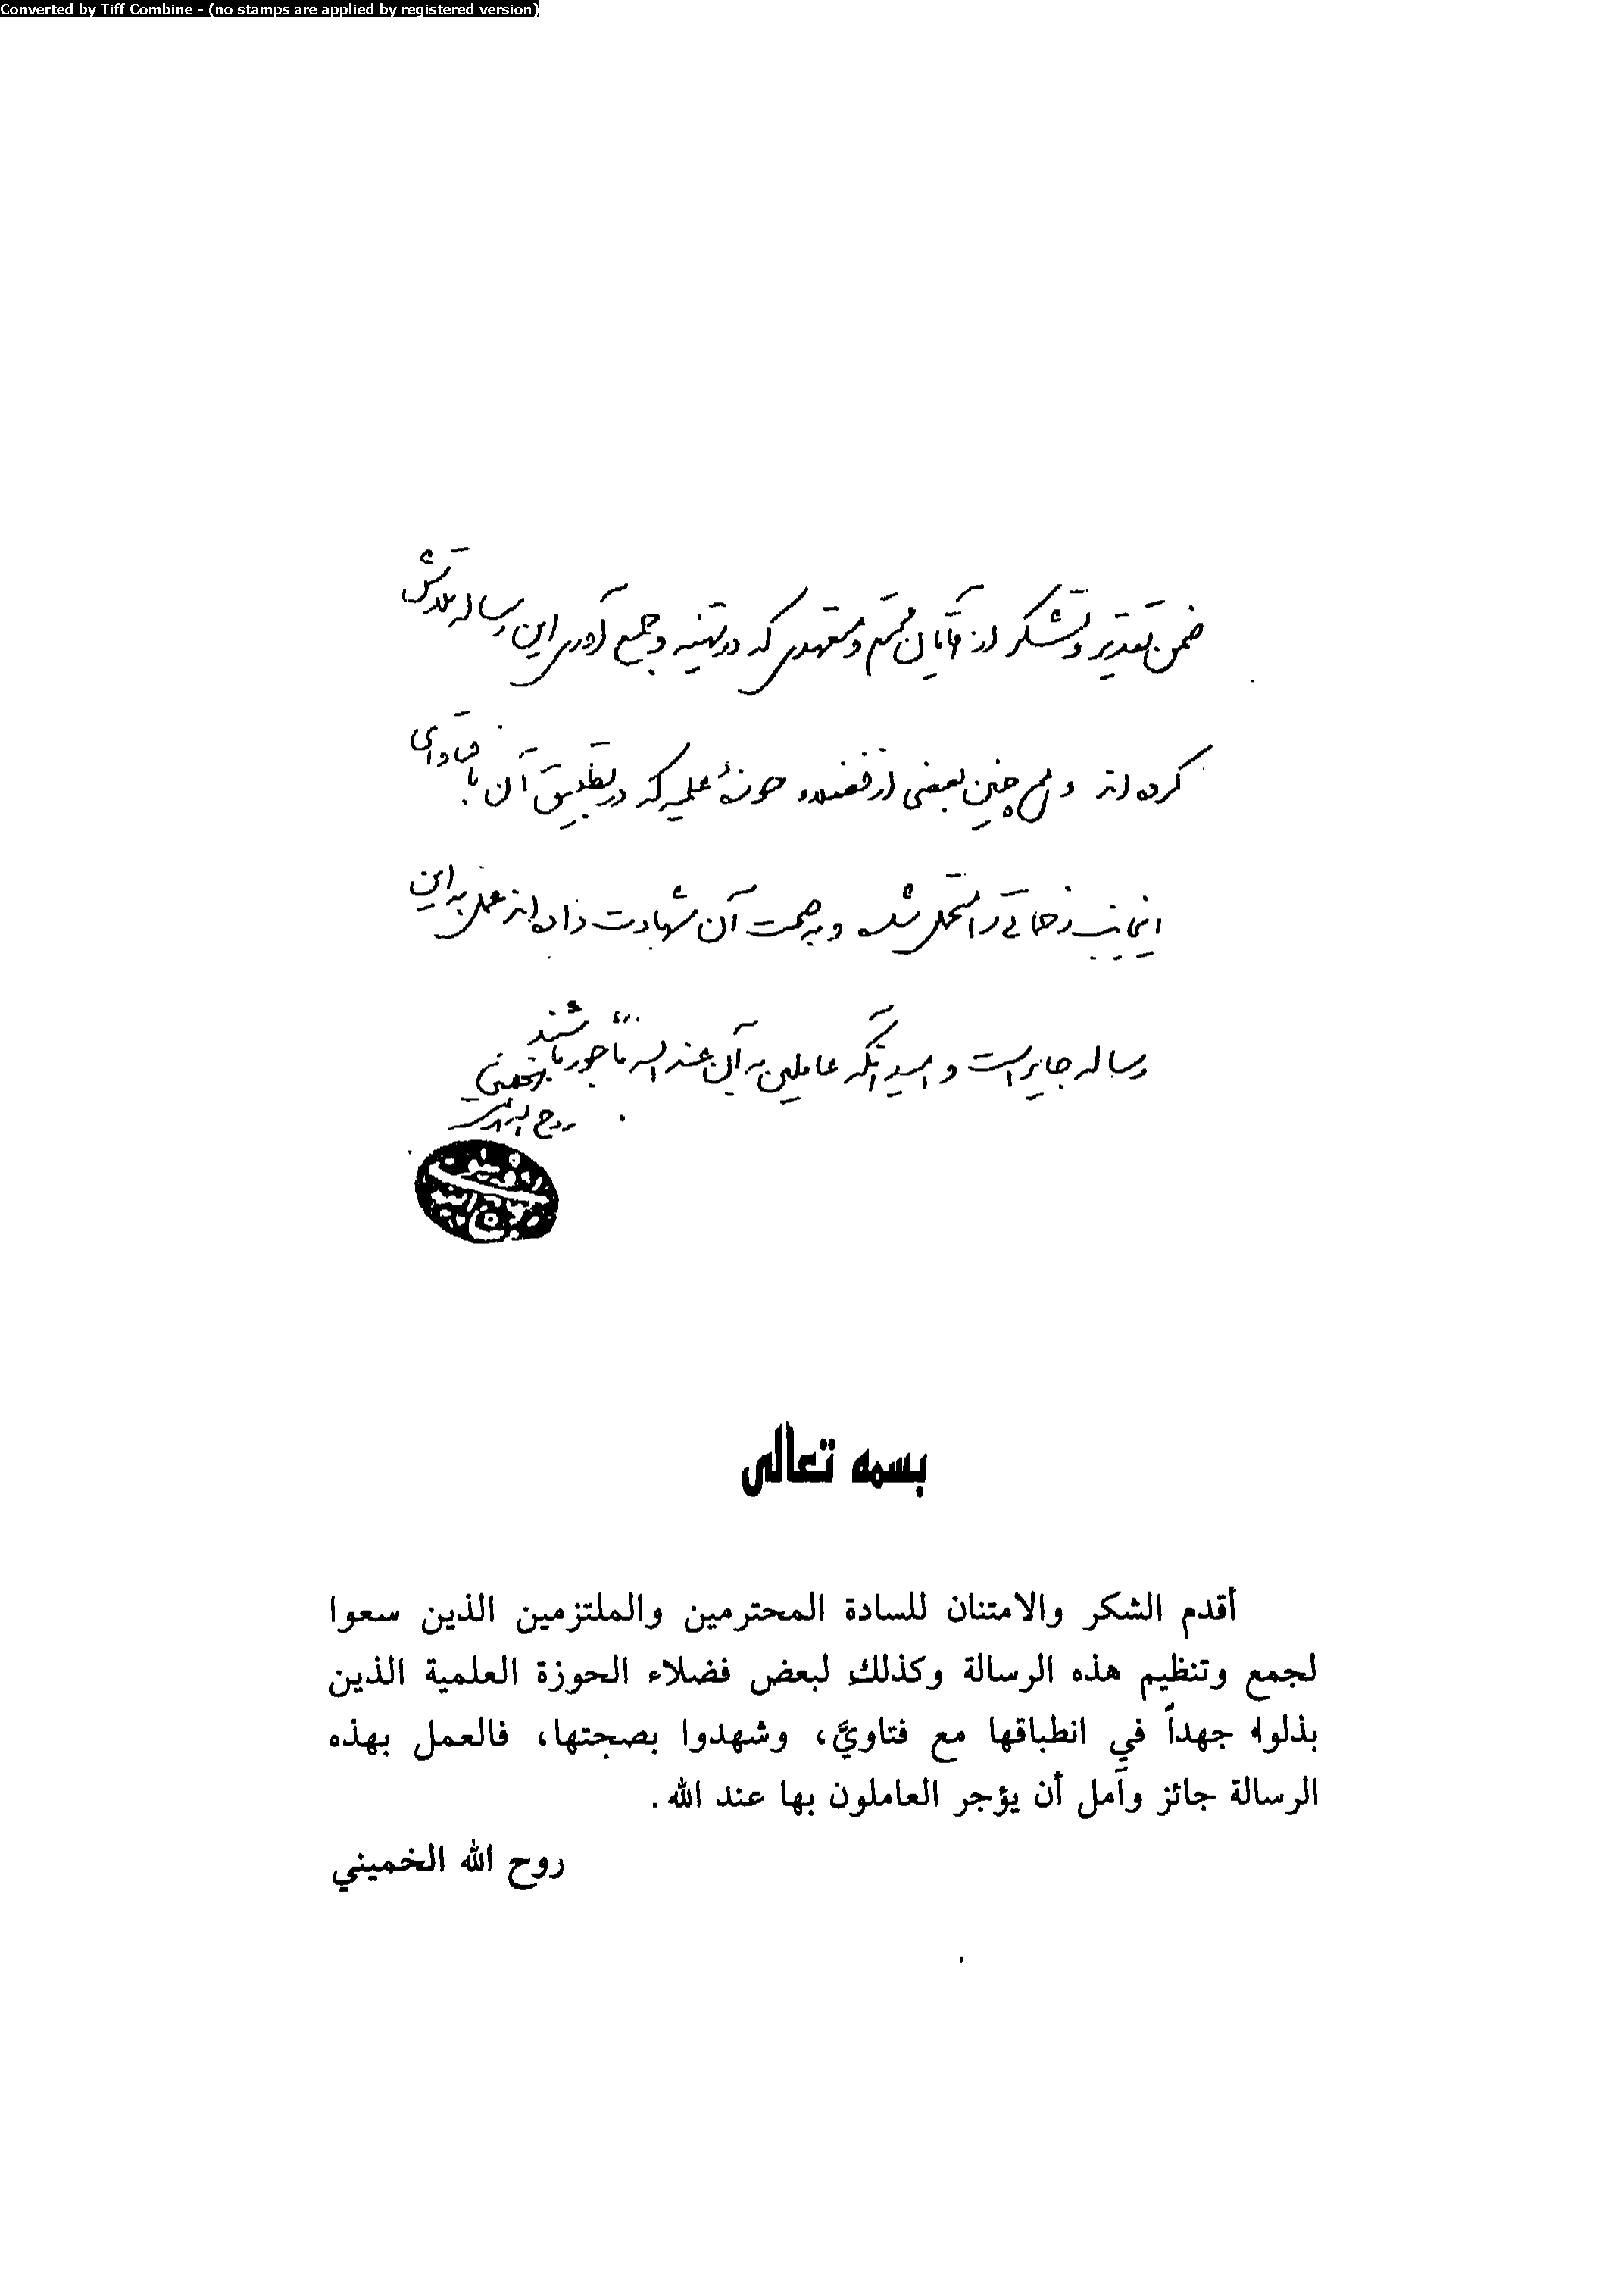 Converted by Tiff Combine - (no stamps are applied by registered version)
ضمن تقدیر و تشکر از آقایان محترم و متعهدی که در تهیه و جمع آوری این رساله تلاش
کرده اند و هم چنین بعضی از فضلاء حوزهٔ علمیه که در تطبیق آن با فتاوای
اینجانب زحماتی را متحمل شده و به صحت آن شهادت داده اند عمل به این
رساله جایز است و امید آنکه عاملین به آن عند الله مأجور باشند
روح الله الموسوی الخمینی
بسمه تعالى
أقدم الشكر والامتنان للسادة المحترمين والملتزمين الذين سعوا
لجمع وتنظيم هذه الرسالة وكذلك لبعض فضلاء الحوزة العلمية الذين
بذلوا جهداً في انطباقها مع فتاويَّ، وشهدوا بصحتها، فالعمل بهذه
الرسالة جائز وآمل أن يؤجر العاملون بها عند الله.
روح الله الخميني